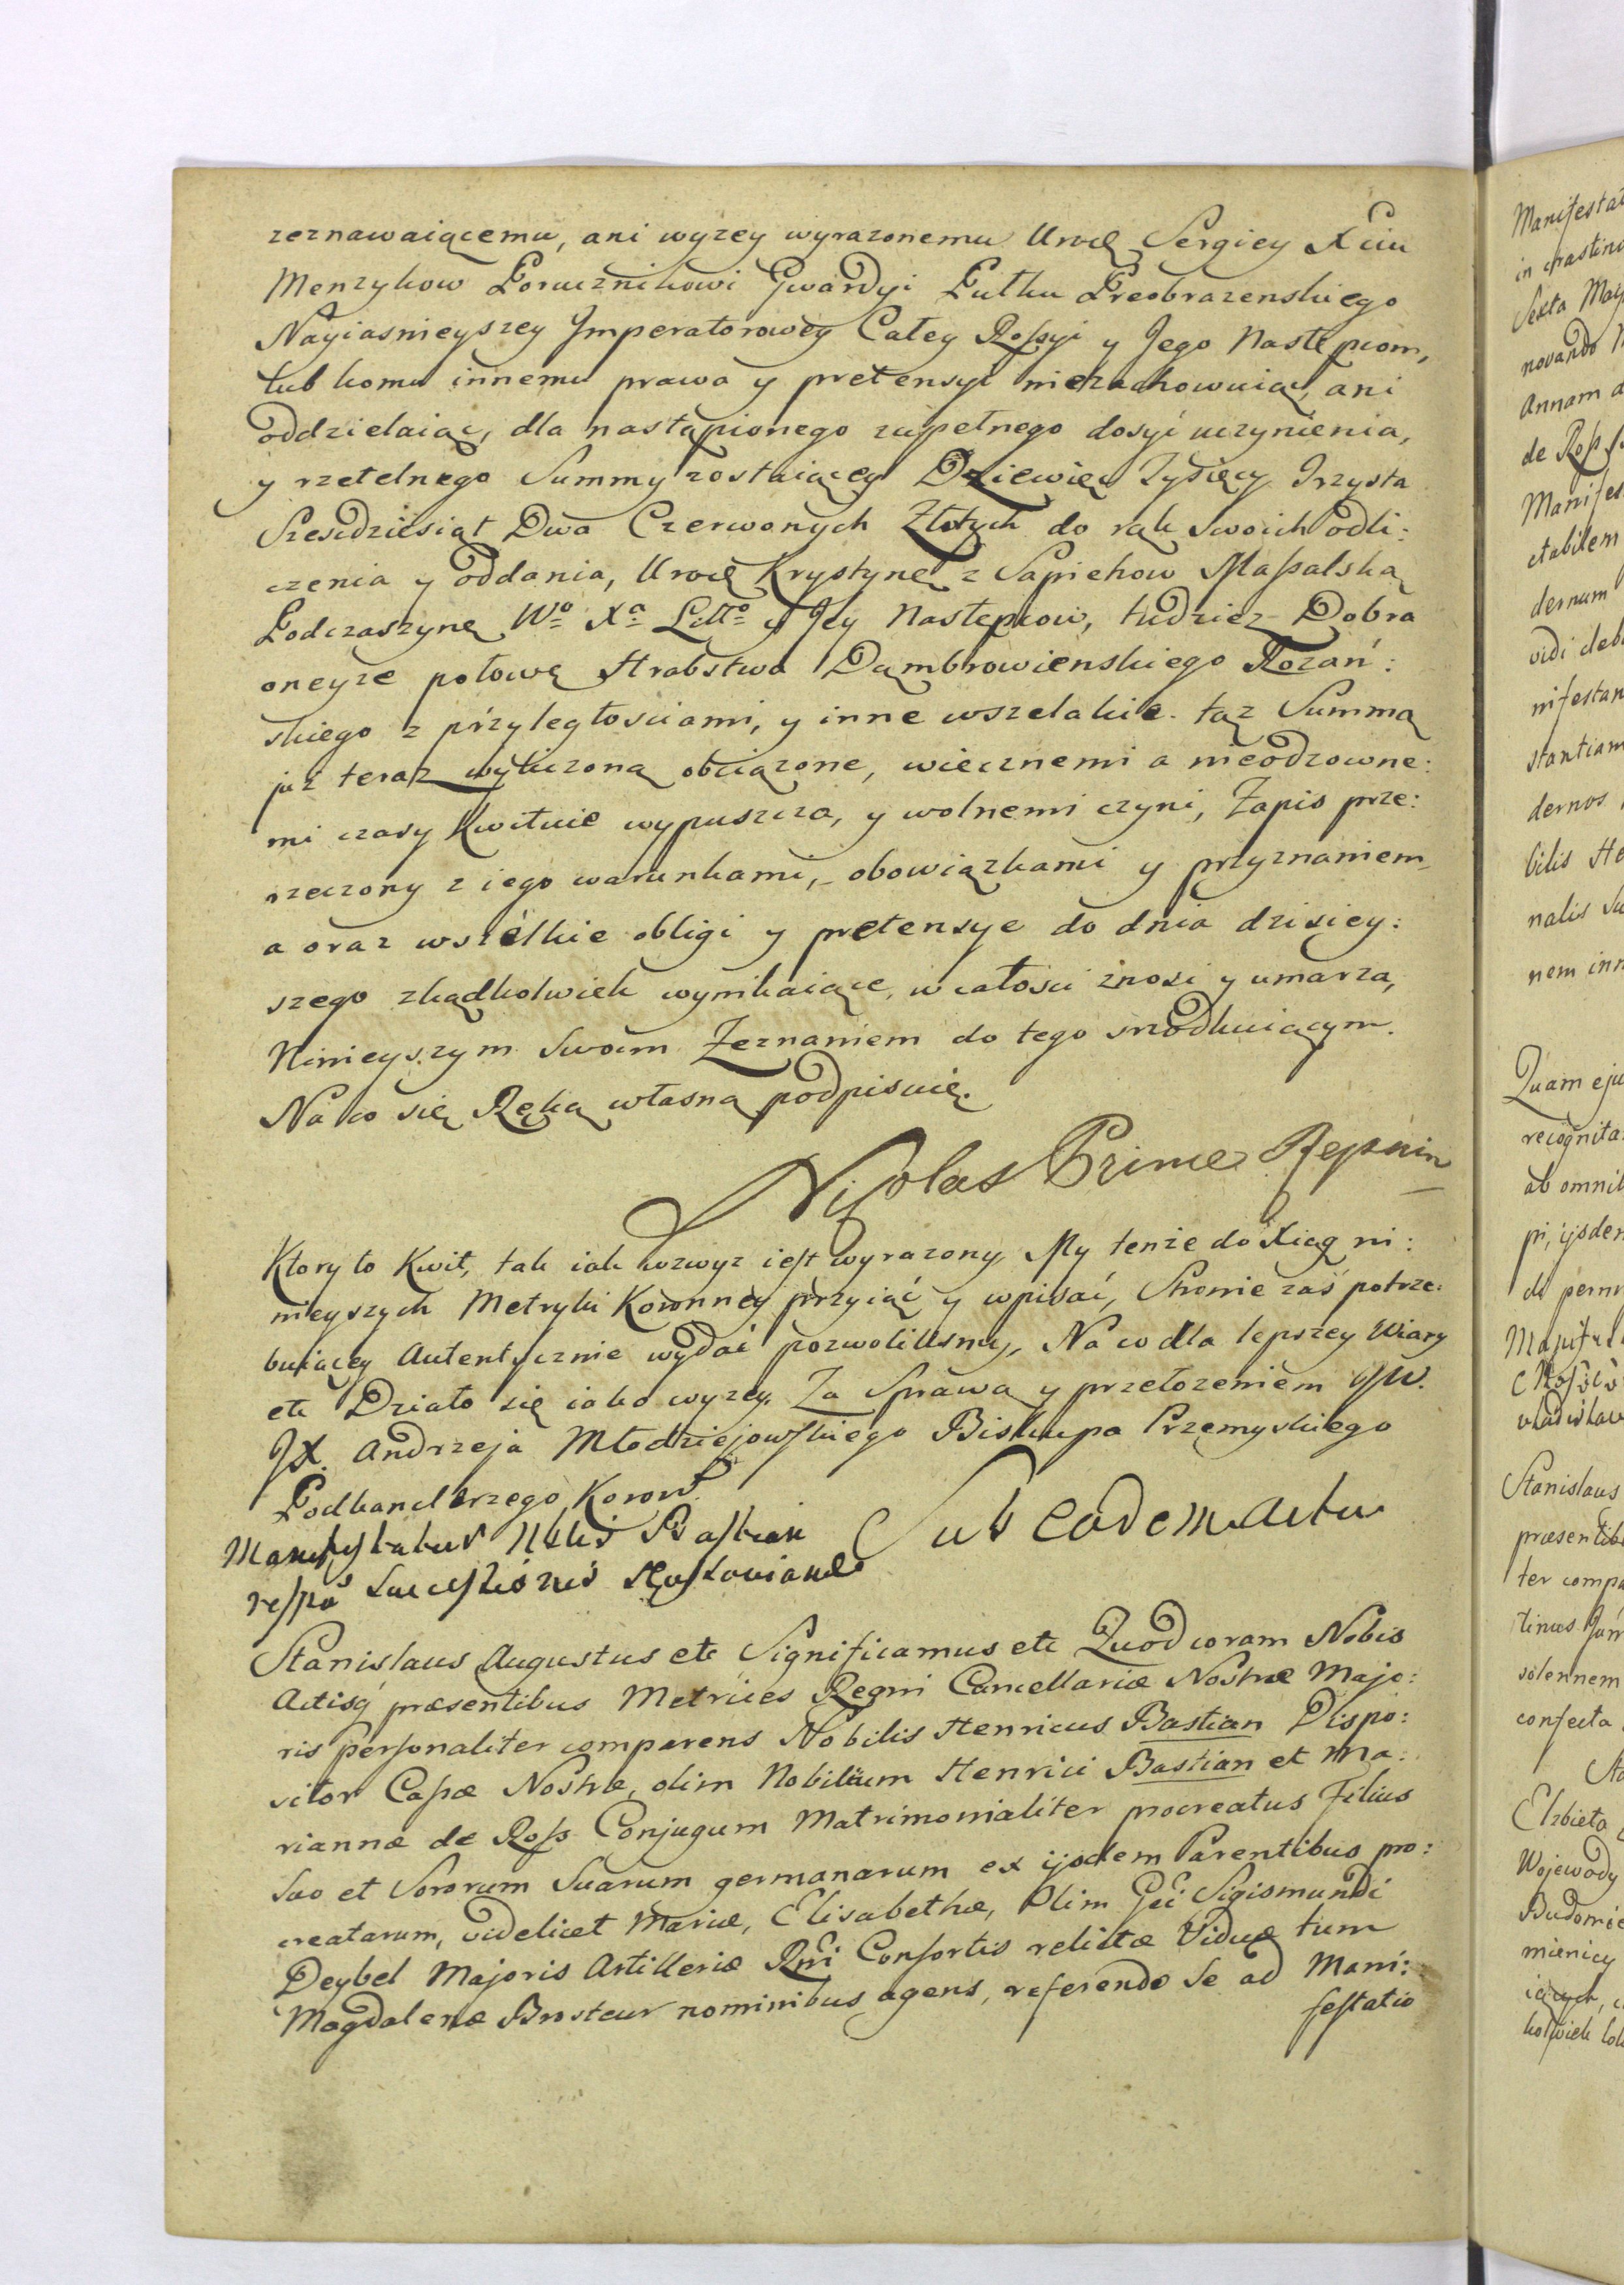 zeznawaiącemu, ani wyzey wyrazonemu Urodę Sergiey Xciu
Menzykow Porucznikowi Gwardyi Pułku Preobrazenskiego
Nayiasnieyszey Jmperatorowey Całey Roſsyi y Jego Nastę pcom,
lub komu innemu prawa y pretensyi niezachowuiąc, ani
oddzielaiąc, dla nastąpionego zupełnego dosyć uczynienia,
y rzetelnego Summy zostaiącey Dziewięć Tysięcy Trzysta
Szescdziesiąt Dwa Czerwonych Złotych do rąk Swoich odli:
czenia y oddania, Urodę Krystynę z Sapiehow Maſsalską
Podczaszynę Wo Xa Litto y Jey Następcow, tudziez Dobra
oneyze połowę Hrabstwa Dąmbrowienskiego Rozań:
skiego z przyległosciami, y inne wszelakie tąz Summą
już teraz wyliczoną obciązone, wiecznemi a nieodzowne:
mi czasy Kwituie wypuszcza, y wolnemi czyni, Zapis prze:
rzeczony z iego warunkami, obowiązkami y przyznaniem
a oraz wszelkie obligi y pretensye do dnia dzisiey:
szego zkądkolwiek wynikaiące, w całosci znosi y umarza,
Ninieyszym Swoim Zeznaniem do tego srzodkuiącym.
Na co się Ręką własną podpisuię.
Nicolas Prince Repnin
Ktory to Kwit, tak iak wzwyz ieſt wyrazony My tenże do Xiąg ni:
nieyszych Metryki Koronney przyiąć y wpisać, Stronie zaś potrze:
buiącey Autentycznie wydać pozwolilismy, Na co dla lepszey Wiary
etc Działo się iako wyzey. Za Sprawą y przełozeniem JW.
JX. Andrzeja Młodziejowſkiego Biskupa Przemyskiego
Podkanclerzego Koron
Manifestatur Nblis Baſtian
reſptu Succeſsionis Roſsovianae
Sub eodem Actu
Stanislaus Augustus etc Significamus etc Quod coram Nobis
Actisq præsentibus Metrices Regni Cancellariæ Nostræ Majo:
ris perſonaliter comparens Nobilis Henricus Bastian Dispo:
sitor Caſsæ Nostræ, olim Nobilium Henrici Bastian et Ma:
riannæ de Roſs Conjugum Matrimonialiter procreatus Filius
Suo et Sororum Suarum germanarum ex ijsdem Parentibus pro:
creatarum, videlicet Mariæ, Elisabethæ, Olim Gsi Sigismundi
Deybel Majoris Artilleriæ Rni Conſortis relictæ Viduæ tum
Magdalenæ Brosteur nominibus agens, referendo Se ad Mani:
feſtatio